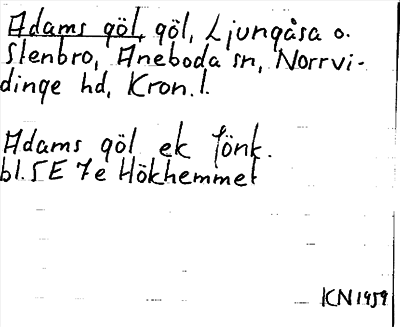 Adams göl, göl, Ljungåsa o.
Stenbro, Aneboda sn, Norrvi-
dinge hd, Kron. l.
Adams göl ek Jönk.
bl. 5E 7e Hökhemmet
KN 1959